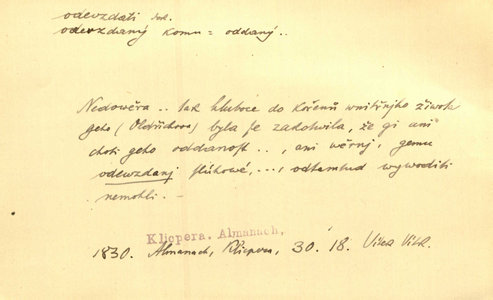 odevzdati dok.
odevzdaný komu = oddaný..
Nedowěra .. tak hluboce do kořenů wnitřnjho žiwota
geho (Oldřichowa) byla se zakotwila, že gi ani
choti geho oddanost .., ani wěrnj, gemu
odewzdanj sluhowé, ..., odtamtud wywoditi
nemohli.
Klicpera. Almanach,
1830. Almanach, Klicpera, 30. 18.